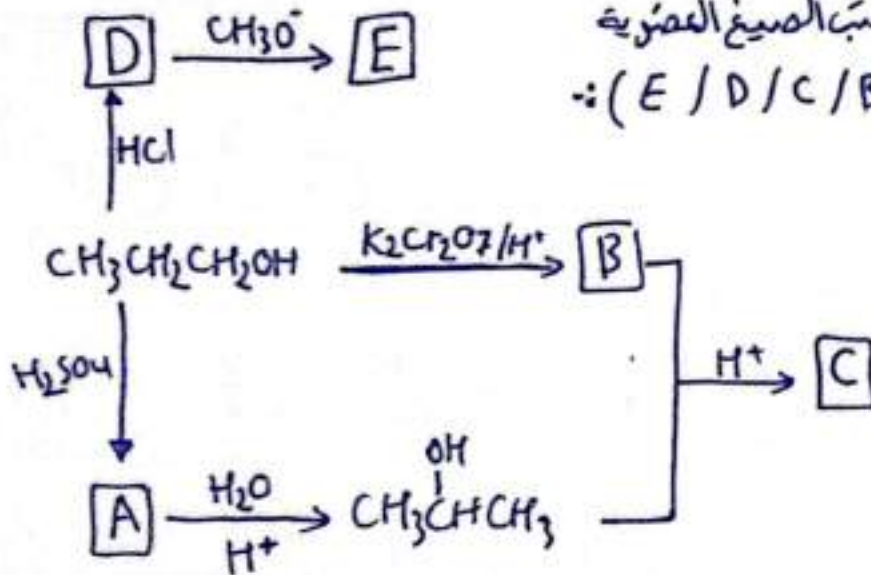 D CH3O⁻ E
الصيغ العضوية
(E / D / C / B :-
HCl
CH3CH2CH2OH K2Cr2O7/H⁺ B
H⁺ C
H2SO4
OH
A H2O CH3CHCH3
H⁺